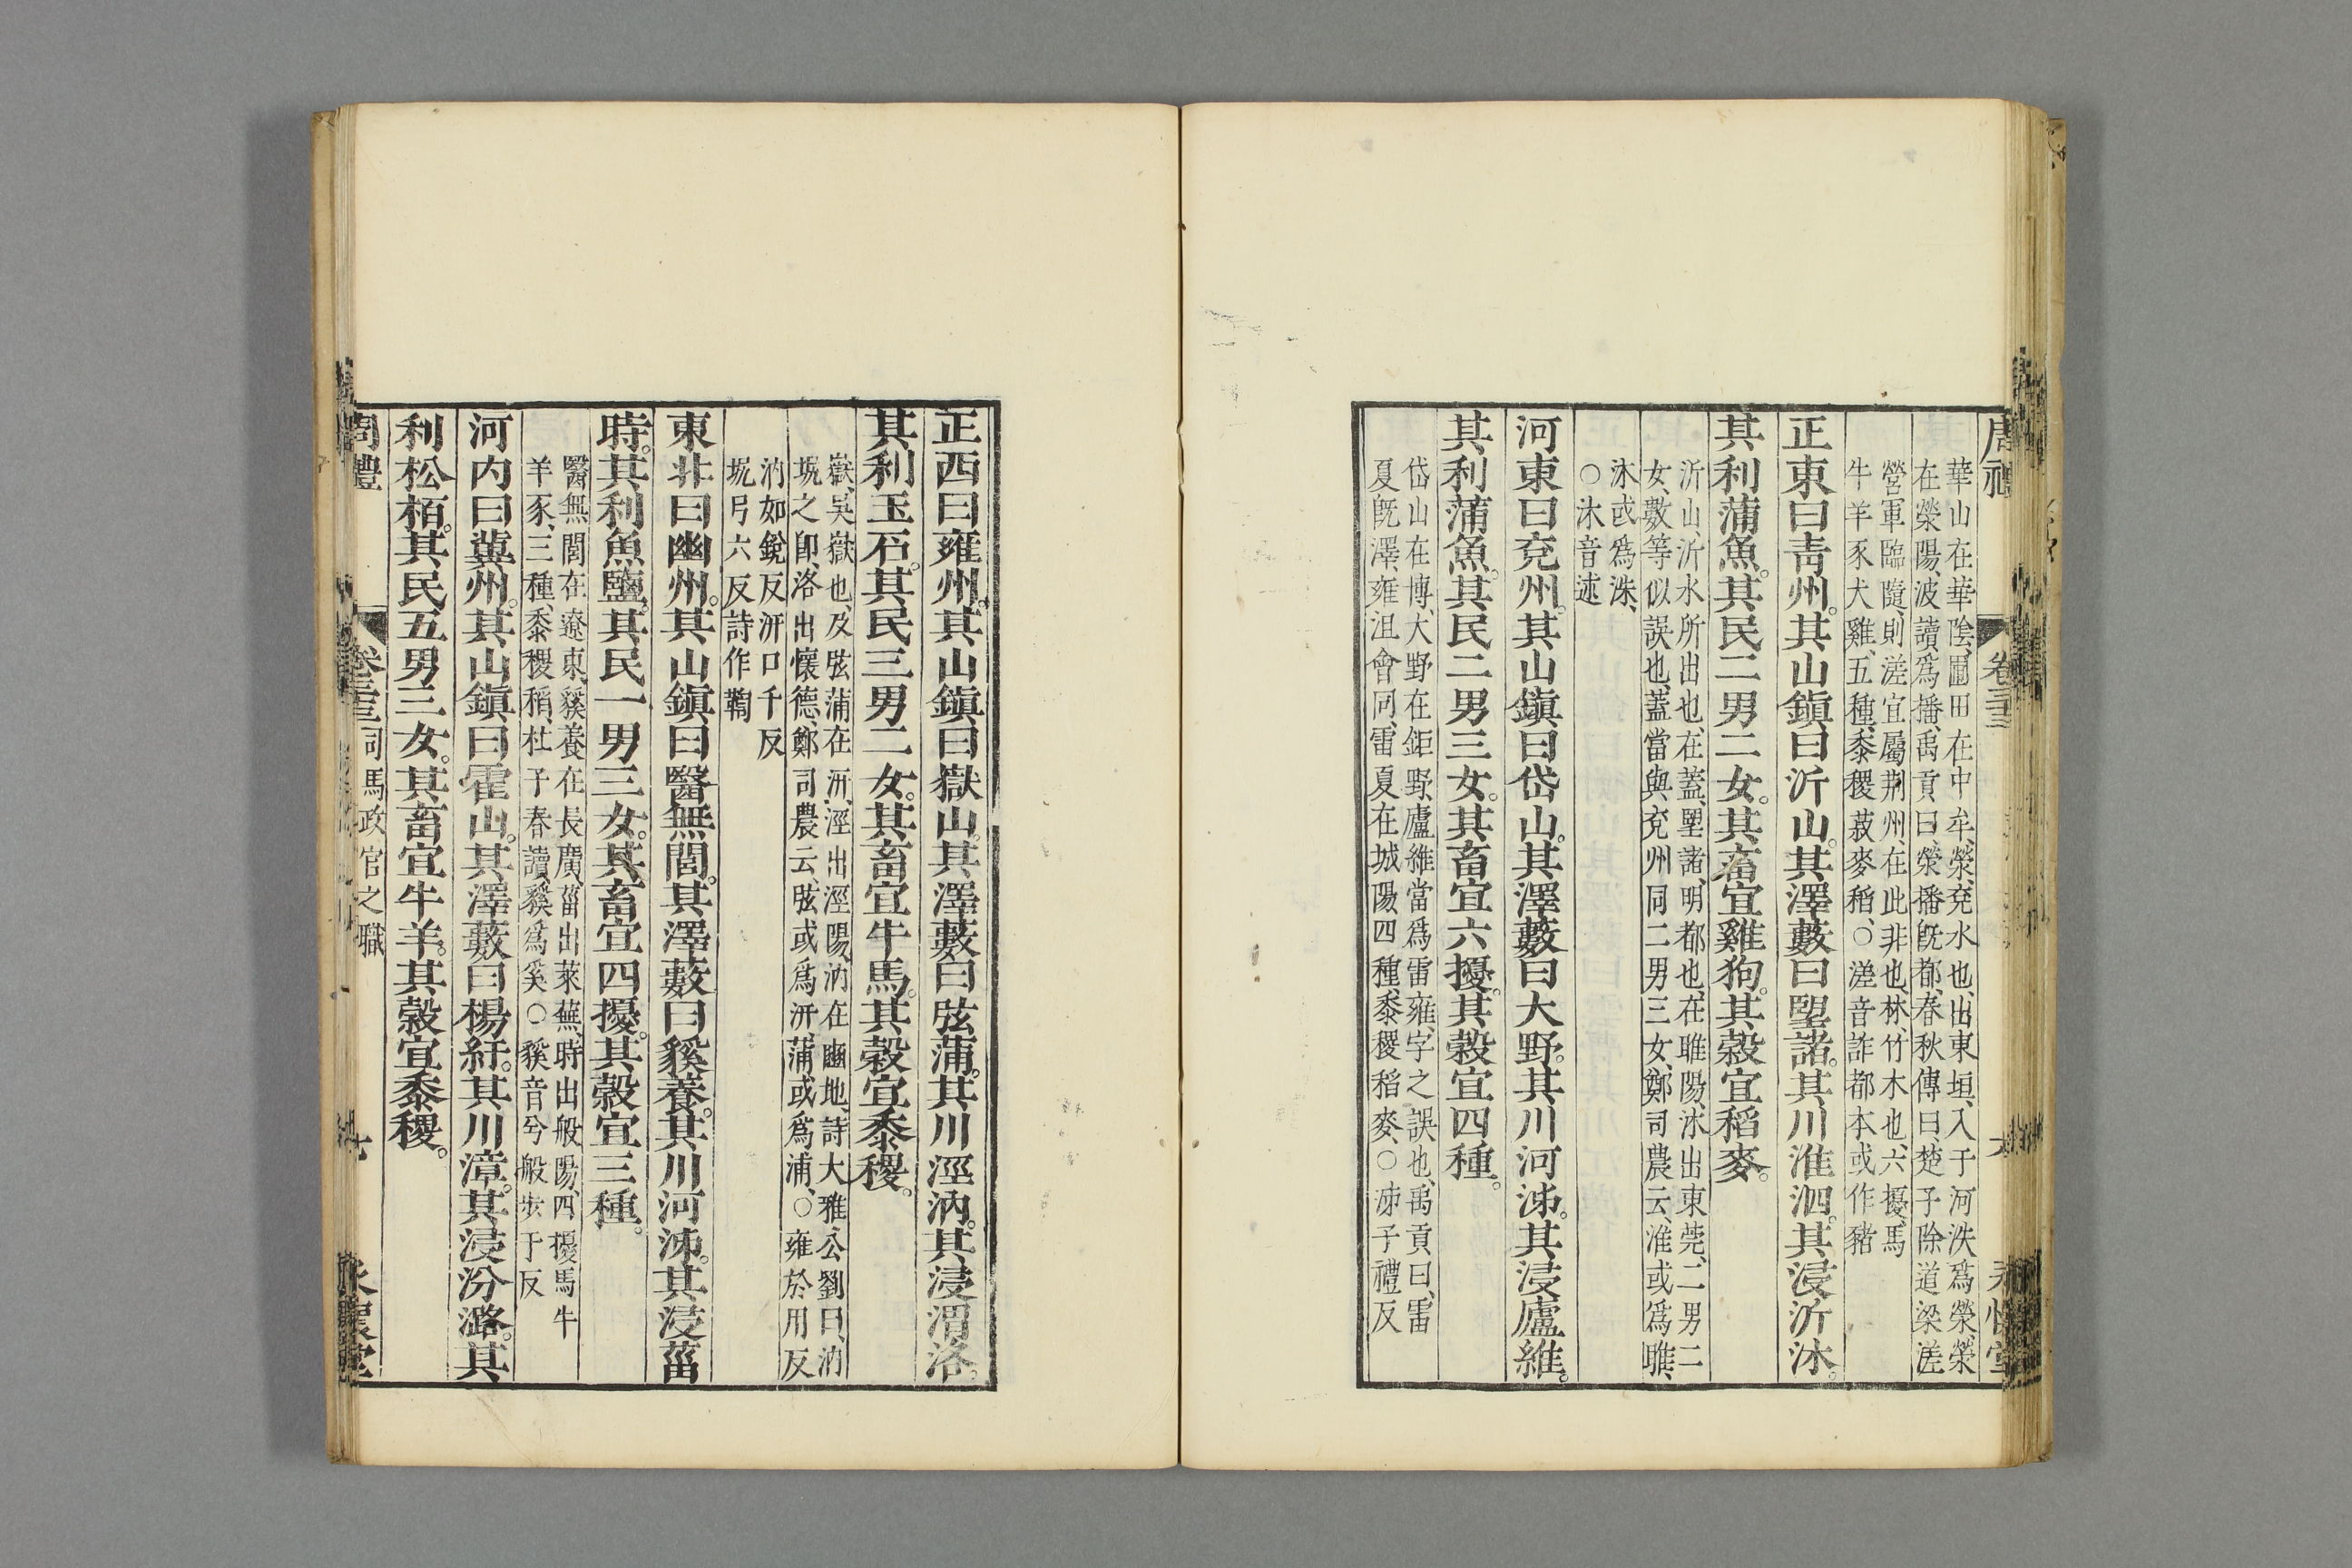 周禮
卷三十三
六
永懷堂
華山在華陰、圃田在中牟、滎、兗水也、出東垣、入于河、泆爲滎、滎
在滎陽、波讀爲播、禹貢曰、滎播旣都、春秋傳曰、楚子除道梁溠
營軍臨隨、則溠宜屬荆州、在此非也、林、竹木也、六擾、馬
牛羊豕犬雞、五種、黍稷菽麥稻、○溠音詐都本或作豬
正東曰靑州。其山鎭、曰沂山。其澤藪曰望諸。其川淮泗。其浸沂沭。
其利蒲魚。其民二男二女。其畜宜雞狗。其穀宜稻麥。
沂山、沂水所出也、在蓋、望諸、明都也、在睢陽、沭出東莞、二男二
女、數等似誤也、蓋當與兗州同二男三女、鄭司農云、淮或爲睢、
沭或爲洙、
○沭音述
河東曰兗州。其山鎭、曰岱山。其澤藪曰大野。其川河泲。其浸廬維。
其利蒲魚。其民二男三女。其畜宜六擾。其穀宜四種。
岱山在博、大野在鉅野、廬維當爲雷雍、字之誤也、禹貢曰、雷
夏旣澤、雍沮會同、雷夏在城陽、四種、黍稷稻麥、○泲子禮反
正西曰雍州。其山鎭、曰嶽山。其澤藪曰弦蒲。其川涇汭。其浸渭洛。
其利玉石。其民三男二女。其畜宜牛馬。其穀宜黍稷。
嶽、吳嶽也、及弦蒲在汧、涇出涇陽、汭在豳地、詩大雅公劉曰、汭
坭之卽、洛出懷德、鄭司農云、弦或爲汧、蒲、或爲浦、○雍於用反
汭如銳反汧口千反
坭弓六反詩作鞫
東北曰幽州。其山鎭、曰醫無閭。其澤藪曰貕養。其川河泲。其浸菑
時。其利魚鹽。其民一男三女。其畜宜四擾。其穀宜三種。
醫無閭在遼東、貕養在長廣、菑出萊蕪、時出般陽、四擾、馬牛
羊豕、三種、黍稷稻、杜子春讀貕爲奚○貕音兮般步于反
河內曰冀州。其山鎭、曰霍山。其澤藪曰楊紆。其川漳。其浸汾潞。其
利松栢。其民五男三女。其畜宜牛羊。其穀宜黍稷。
周禮
卷三十三
司馬政官之職
七
永懷堂